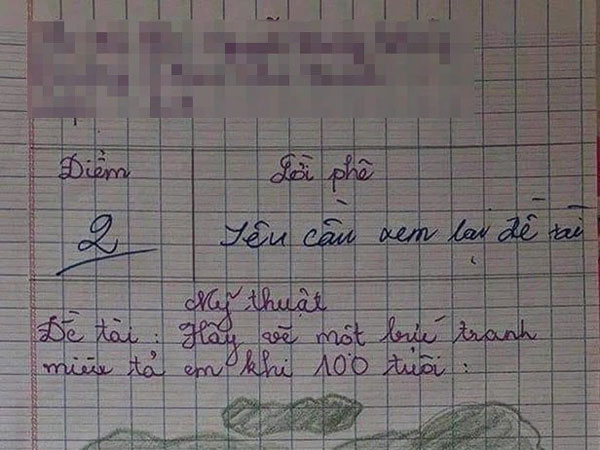 Điểm
Lời phê
2
Yêu cầu xem lại đề tài
Mỹ thuật
Đề tài : Hãy vẽ một bức tranh
miêu tả em khi 100 tuổi :